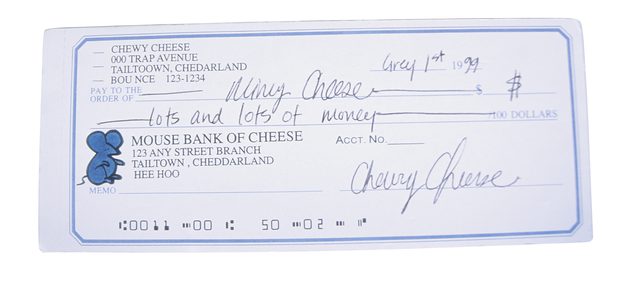 CHEWY CHEESE
000 TRAP AVENUE
TAILTOOWN, CHEDARLAND
BOU NCE 123-1234
Grey 1st 1999
PAY TO THE
ORDER OF Mincy Cheese $ $
lots and lots of money /100 DOLLARS
MOUSE BANK OF CHEESE
123 ANY STREET BRANCH
TAILTOWN , CHEDDARLAND
HEE HOO
ACCT. NO.
Chewy Cheese
MEMO
⑆0011 ⑉00 ⑆ 50 ⑉02 ⑉ ⑈